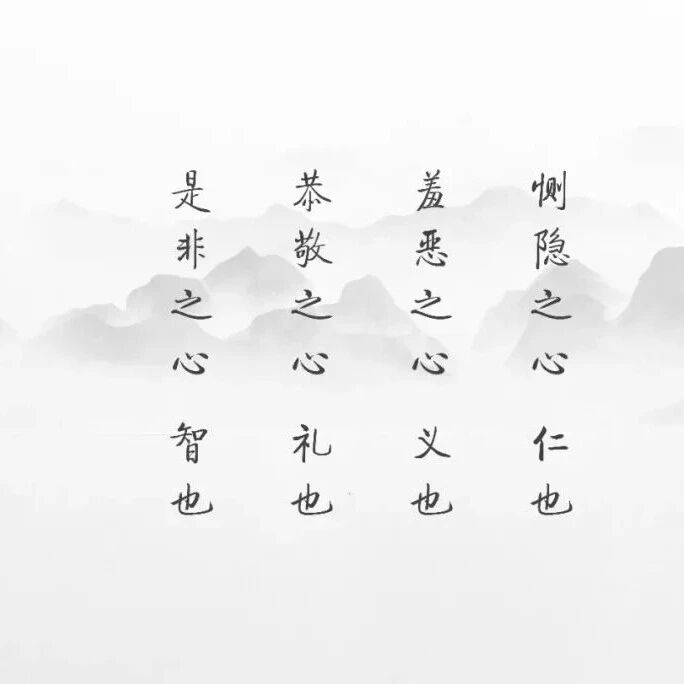 恻隐之心 仁也
羞恶之心 义也
恭敬之心 礼也
是非之心 智也